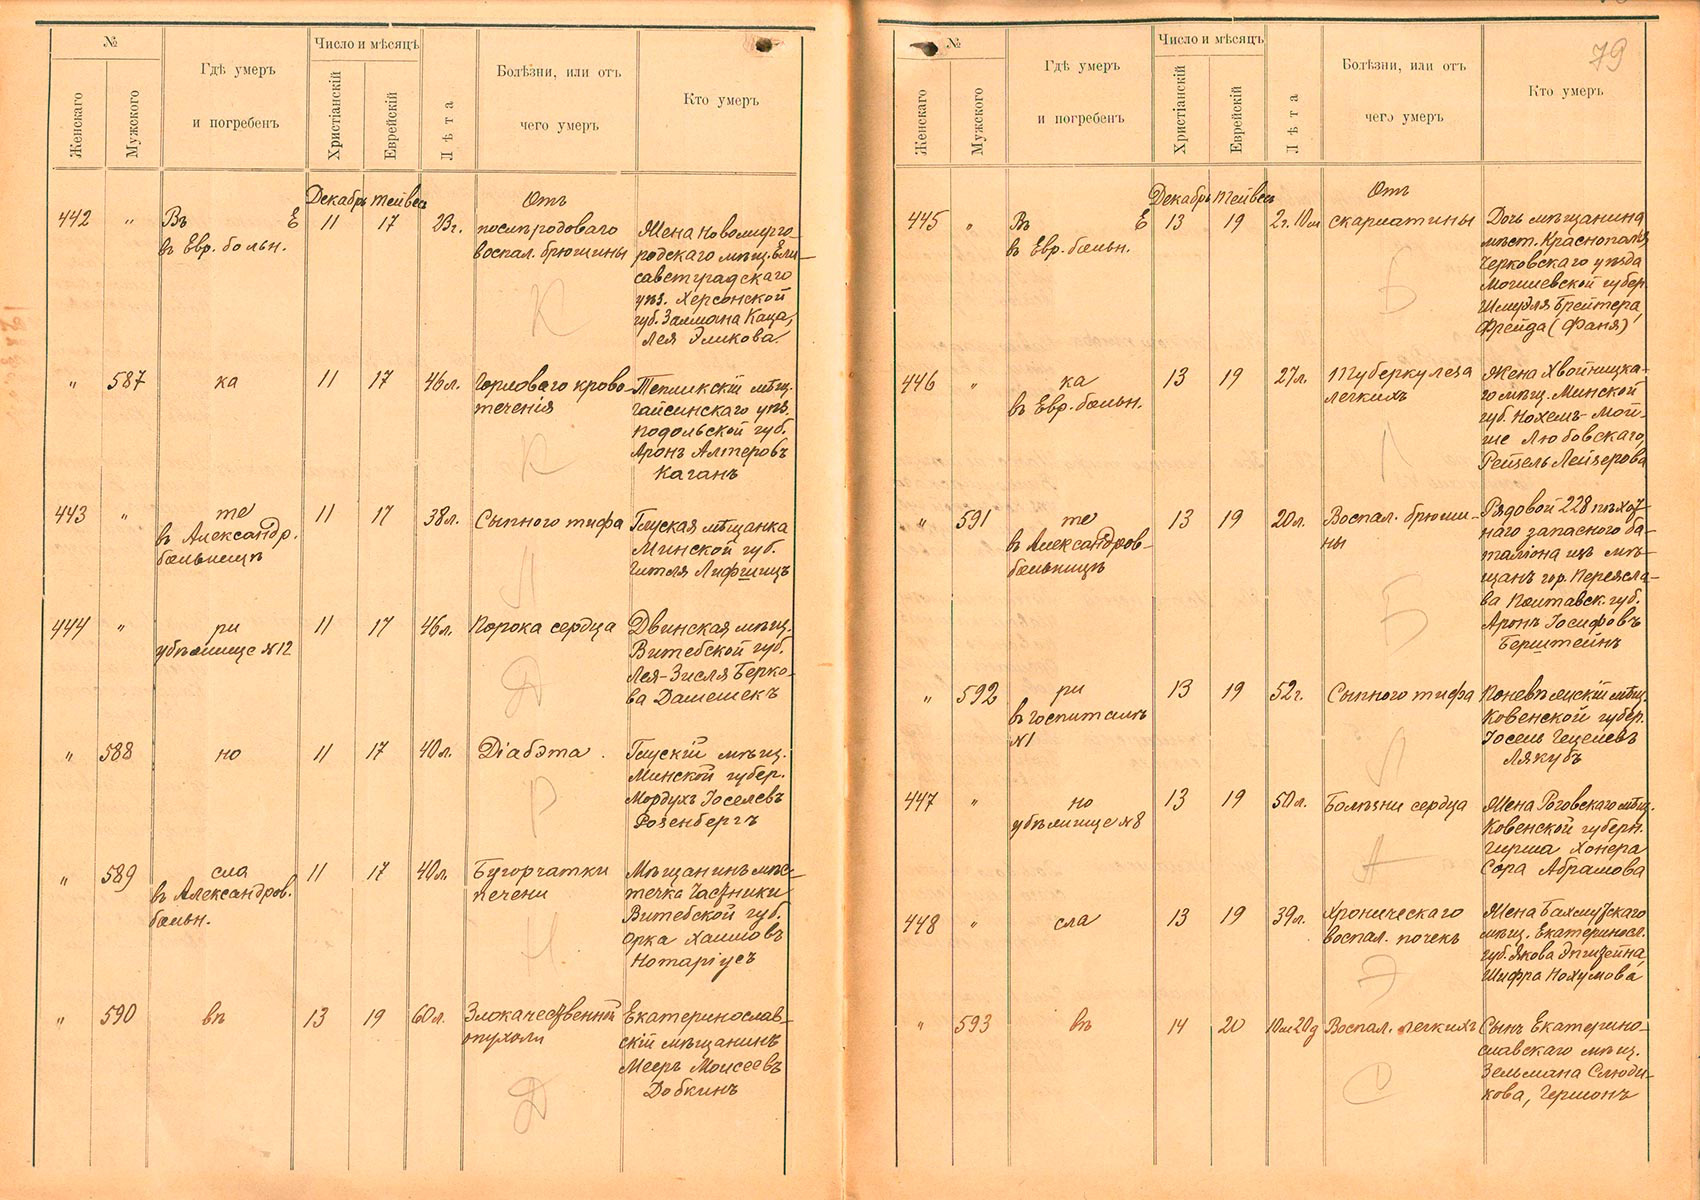 №
Где умеръ
и погребенъ
Число и мѣсяцъ
Болѣзни, или отъ
чего умеръ
Кто умеръ
Женскаго
Мужского
Христіанскій
Еврейскій
Лѣта
Декабрь Тейвесъ
Отъ
442 " Въ Е 11 17 23г. послѣродоваго Жена Новомирго-
въ Евр. больн. воспал. брюшины родскаго мѣщ. Ели-
саветградскаго
уѣз. Херсонской
губ. Залмана Каца,
Лея Эликова
К
" 587 ка 11 17 46л. Горловаго крово- Тепликскій мѣщ.
течения Гайсинскаго уѣз.
Подольской губ.
Аронъ Алтеровъ
Каганъ
К
443 " те 11 17 38л. Сыпного тифа Глуская мѣщанка
въ Александр. Минской губ.
больницѣ Гителя Лифшицъ
Л
444 " ри 11 17 46л. Порока сердца Двинская мѣщ.
убѣжище №12 Витебской губ.
Лея-Зисля Берко-
ва Далешекъ
Д
" 588 но 11 17 40л. Діабэта. Глускій мѣщ.
Минской губер.
Мордухъ Іоселевъ
Розенбергъ
Р
" 589 сла 11 17 40л. Бугорчатки Мѣщанинъ мѣс-
въ Александров. печени течка Чашники
больн. Витебской губ.
Орка Хаимовъ
Нотаріусъ
Н
" 590 вѣ 13 19 60л. Злокачественной Екатеринослав-
опухоли скій мѣщанинъ
Мееръ Моисеевъ
Добкинъ
Д
79
№
Где умеръ
и погребенъ
Число и мѣсяцъ
Болѣзни, или отъ
чего умеръ
Кто умеръ
Женскаго
Мужского
Христіанскій
Еврейскій
Лѣта
Декабрь Тейвесъ
Отъ
445 " Въ Е 13 19 2г. 10м скарлатины Дочь мѣщанина
въ Евр. больн. мѣст. Краснополья
Чериковскаго уѣзда
Могилевской губер.
Шмуэля Брейтера,
Фрейда (Фаня)
Б
446 " ка 13 19 27л. Туберкулеза Жена Хвойницка-
въ Евр. больн. легкихъ го мѣщ. Минской
губ. Нохемъ-Мой-
ше Любовскаго,
Рейзель Лейзерова
Л
" 591 те 13 19 20л. Воспал. брюши- Рядовой 228 пѣхот-
въ Александров- ны наго запаснаго ба-
больницѣ таліона изъ мѣ-
щанъ гор. Переясла-
ва Полтавск. губ.
Аронъ Іосифовъ
Берштейнъ
Б
" 592 ри 13 19 52г. Сыпного тифа Поневѣжскій мѣщ.
въ госпиталѣ Ковенской губер.
№1 Іосель Гецелевъ
Лякубъ
Л
447 " но 13 19 50л. Болѣзни сердца Жена Роговскаго мѣщ.
убѣжище №8 Ковенской губерн.
Гирша Хонера
Сора Абрамова
448 " сла 13 19 39л. Хроническаго Жена Бахмутскаго
воспал. почекъ мѣщ. Екатериносл.
губ. Якова Эпштейна,
Шифра Нохумова
Э
" 593 вѣ 14 20 10м20д Воспал. легкихъ Сынъ Екатерино-
славскаго мѣщ.
Зельмана Слюди-
кова, Гермонъ
С